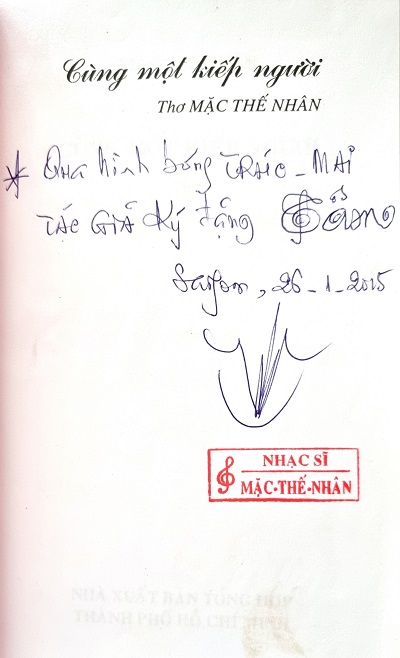 Cùng một kiếp người
Thơ MẶC THẾ NHÂN
* Qua hình bóng TRÁC - MAI
TÁC GIẢ Ký Tặng
Saigon, 26-1-2015
NHẠC SĨ
MẶC-THẾ-NHÂN
NHÀ XUẤT BẢN TỔNG HỢP
THÀNH PHỐ HỒ CHÍ MINH